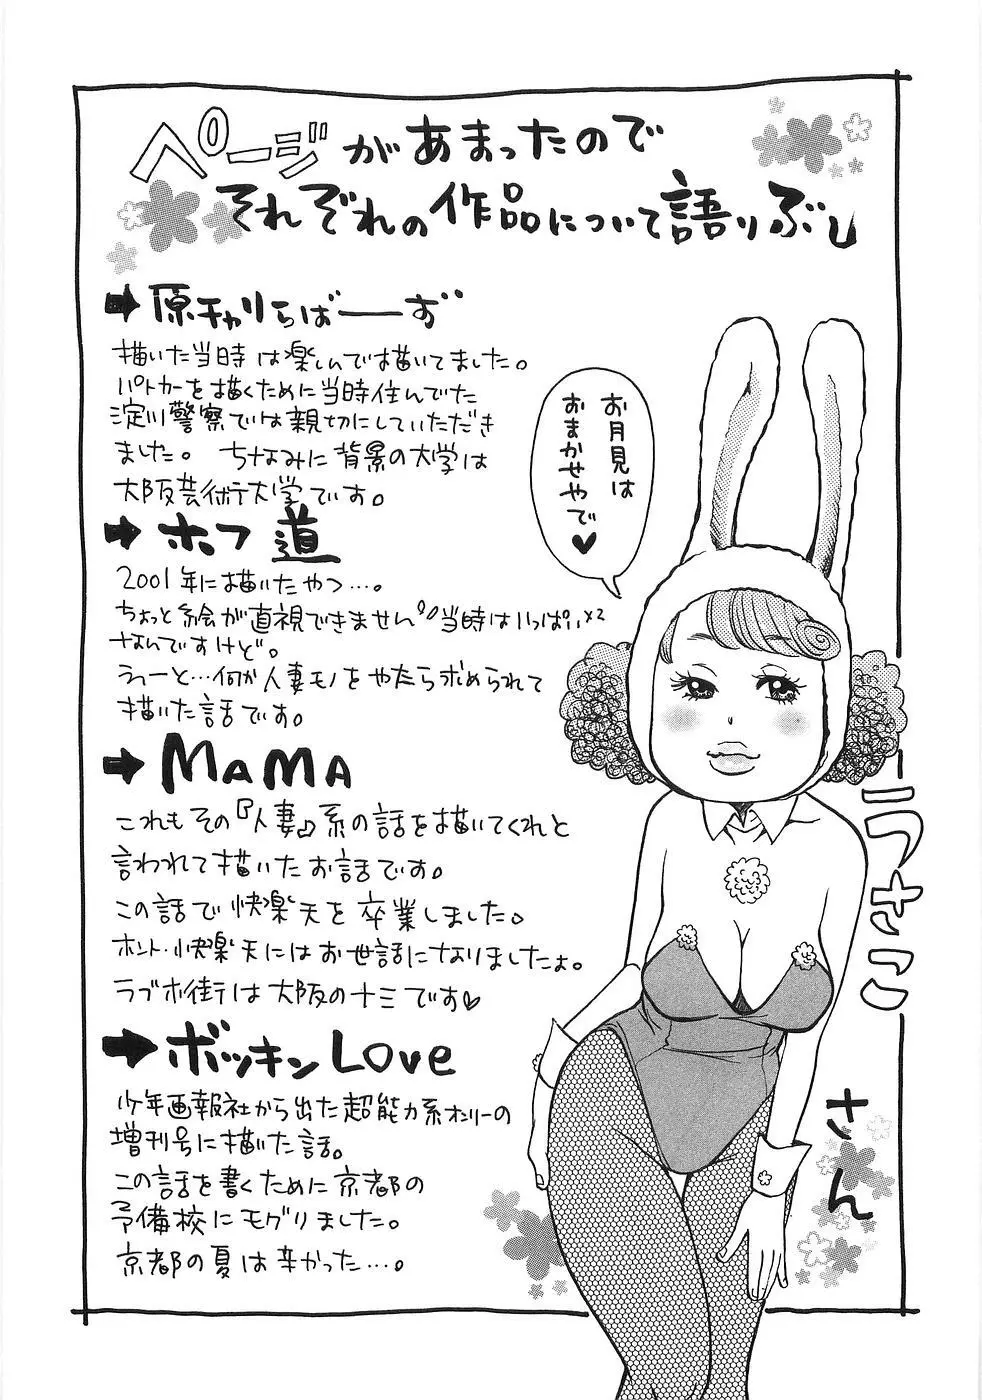 ページがあまったので
それぞれの作品について語りぶし
➡原チャリちばーーず
描いた当時は楽しんで描いてました。
パトカーを描くために当時住んでた
淀川警察では親切にしていただき
ました。 ちなみに背景の大学は
大阪芸術大学です。
➡ホフ道
2001年に描いたやつ…。
ちょっと絵が直視できません。当時はいっぱい×2
なんですけど。
うーと…何か人妻モノをやたら求められて
描いた話です。
➡MAMA
これもその『人妻』系の話を描いてくれと
言われて描いたお話です。
この話で快楽天を卒業しました。
ホント・快楽天にはお世話になりましたよ。
ラブホ街は大阪の十三です♥
➡ボッキンLove
少年画報社から出た超能力系オンリーの
増刊号に描いた話。
この話を書くために京都の
予備校にモグリました。
京都の夏は辛かった…。
お月見は
おまかせやで♥
うさこ
さん